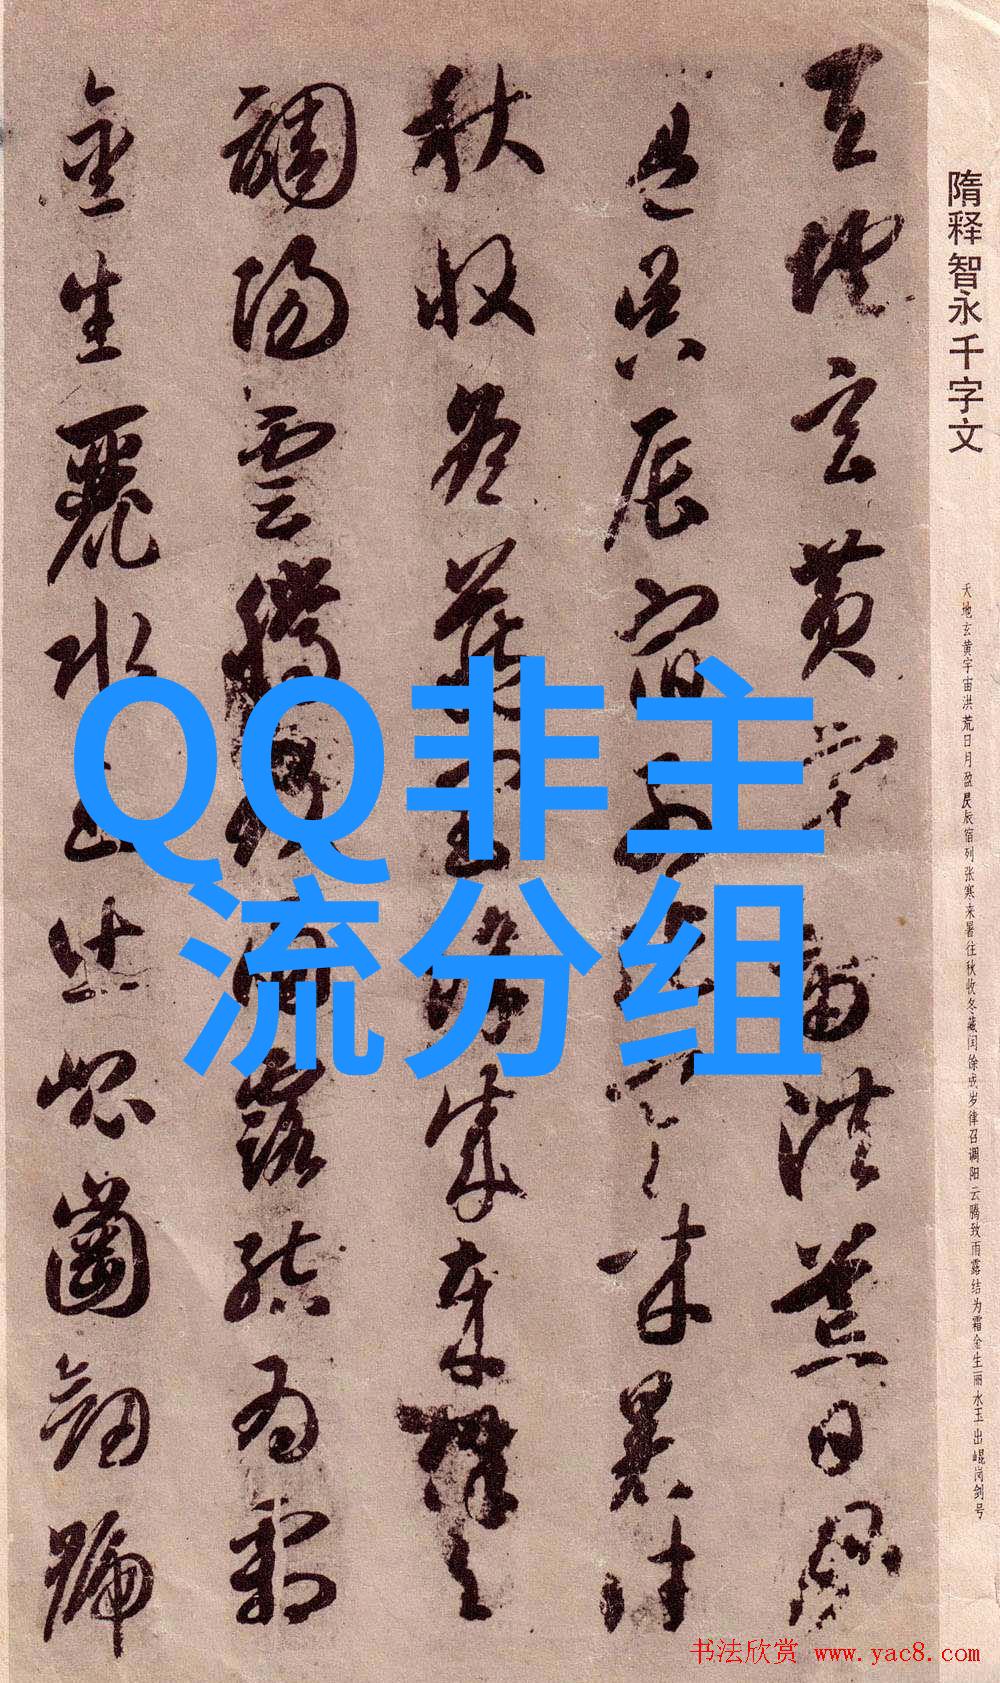 隋释智永千字文
天地玄黄宇宙洪荒日月盈昃辰宿列张寒来暑往秋收冬藏闰馀成岁律召调阳云腾致雨露结为霜金生丽水玉出崐岗剑号
天地玄黄宇宙洪荒日月
盈昃辰宿列張寒来暑往
秋收冬藏閏餘成歲律吕
調陽雲騰致雨露結為霜
金生麗水玉出崐崗劒號
QQ非主
流分组
书法欣赏 www.yac8.com